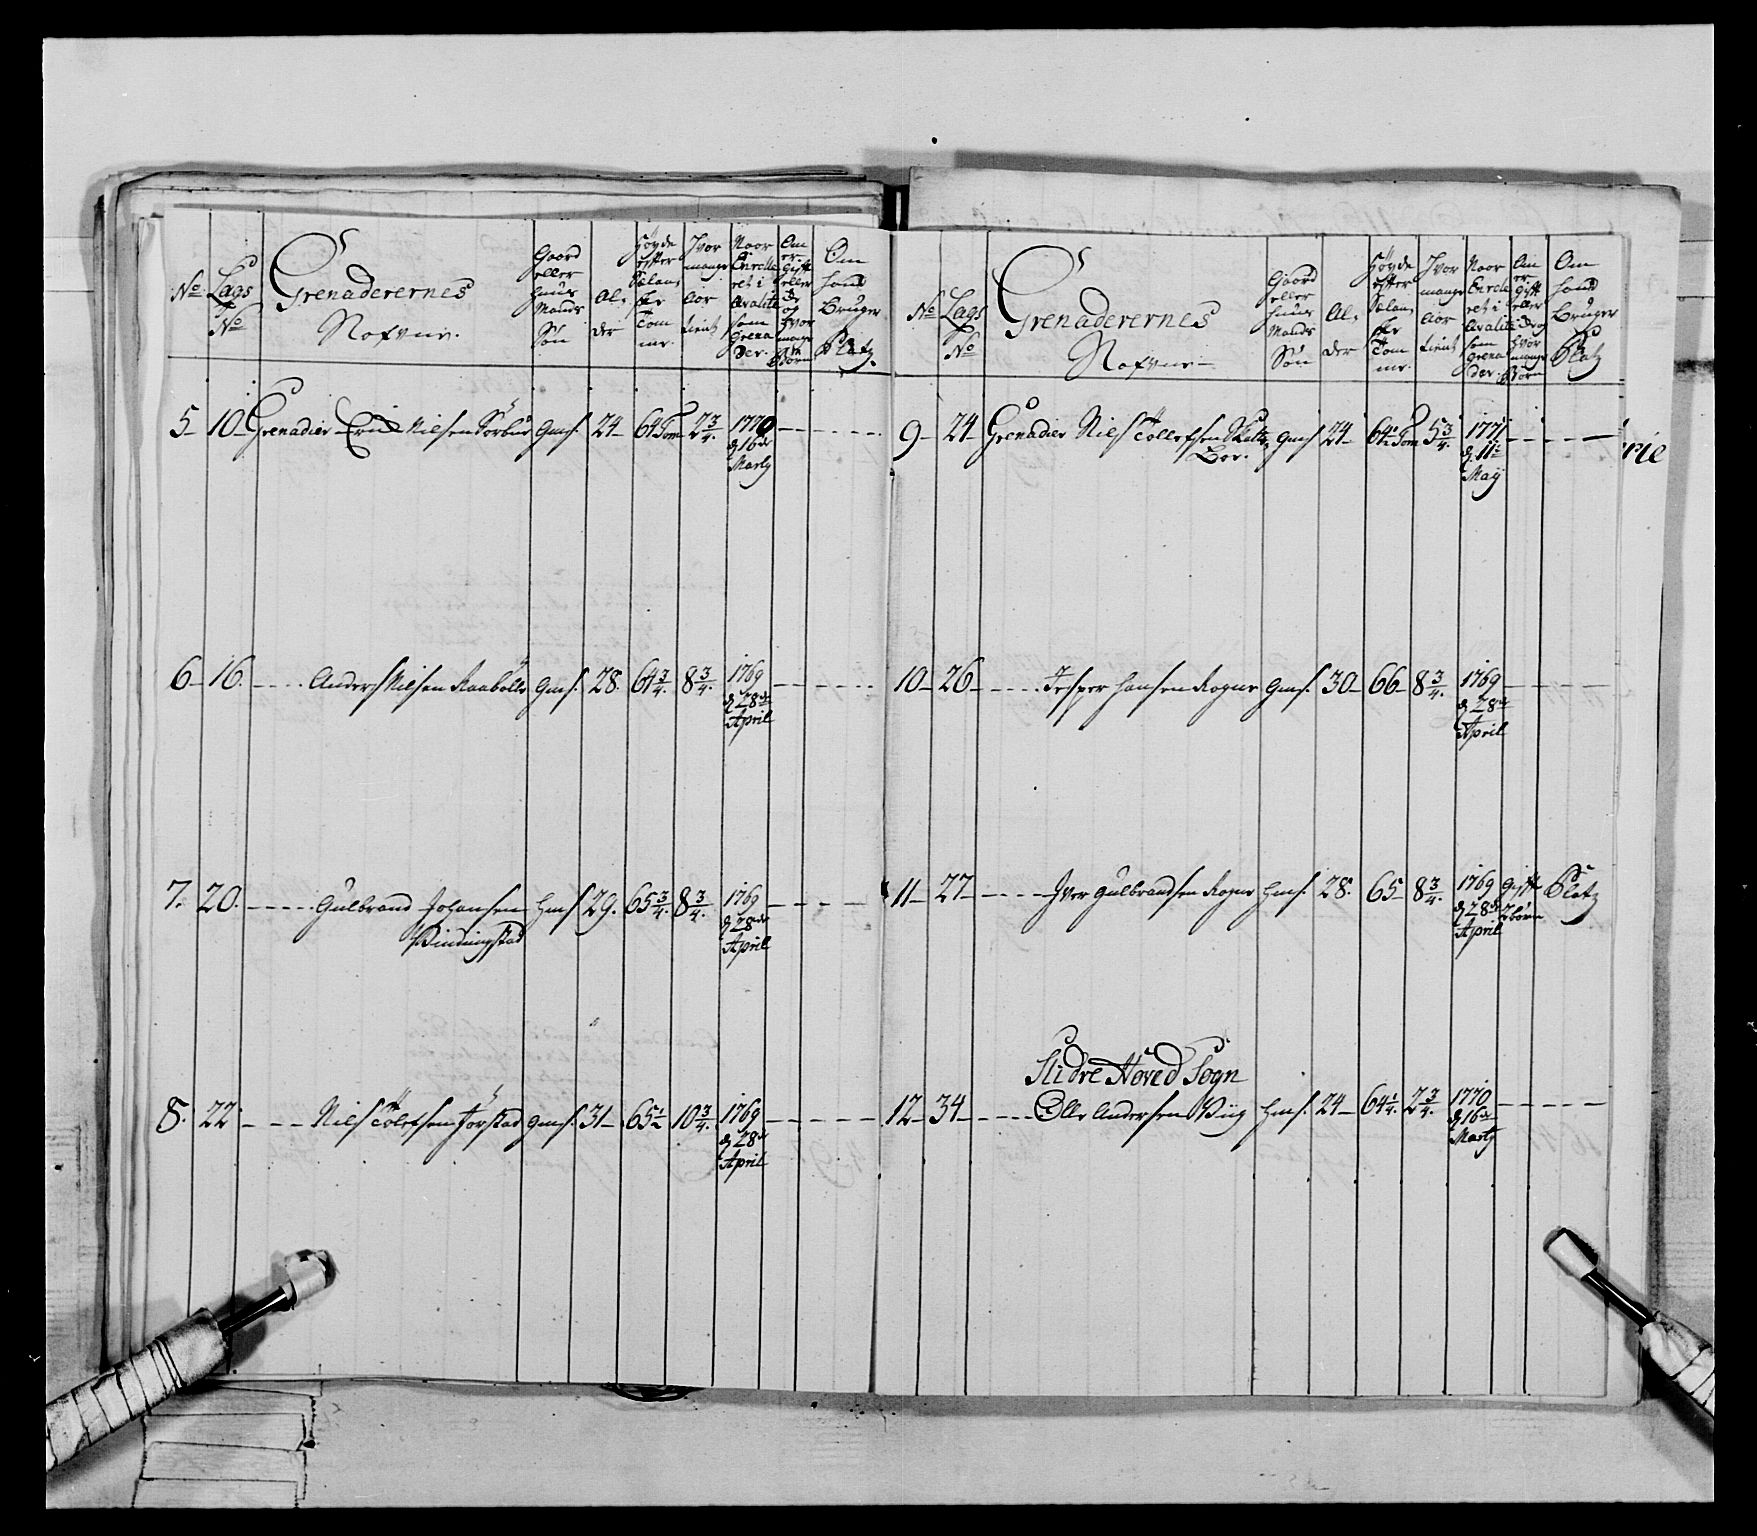 No Lags No Grenaderernes Nafvne. Gaard eller Huus Mands Søn Al, der Høyde efter Sælan, ske Tom me. Hvor mange Aar tient Naar Enrolle ret i Qvalite som Grena der. Om er Gift eller Ey og hvor mange Børn Om hand Bruger Platz.
5 10 Grenadier Erich Nielsen Sörbüe Gms. 24 64 Tom 2 3/4. 1770 d 16de Marty
6 16. Anders Nilsen Raaböle Gms. 28. 64 3/4. 8 3/4. 1769 d 28de April
7. 20. Gulbrand Johansen Windingstad Hms 29. 65 3/4. 8 3/4. 1769 d 28de April
8. 22 Nils Tölefsen Jörstad Gms. 31 65 1/2 10 3/4. 1769 d 28de April
No Lags No Grenaderernes Nafvne Gaard eller Huus Mands Søn Al, der Høyde efter Sælan, ske Tom me. Hvor mange Aar tient Naar Enrolle ret i Qvalite som Grena der. Om er Gift eller Ey og hvor mange Børn Om hand Bruger Platz
9 24 Grenadier Nils Tollefsen Skatte Boe. Gms 24 64 1/2 Tom 5 3/4. 1771 d. 11te Maÿ
rie
10 26 Jesper Hansen Rogne Gms. 30 66 8 3/4. 1769 d 28de April
11 27 Iver Gulbrandsen Rogne Hms. 28. 65 8 3/4. 1769 d 28de April Gift 2 børn Platz
Slidre Hoved Sogn
12 34 Olle Andersen Wiig Hms. 24 64 1/4. 2 3/4. 1770 d 16de Marty